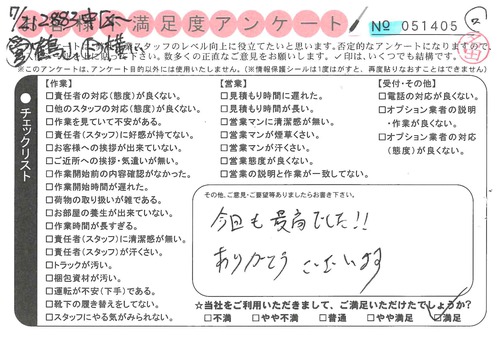 7/2
満足度アンケート
№ 051405
スタッフのレベル向上に役立てたいと思います。否定的なアンケートになりますので、
数多くの正直なご意見をお願いします。✓印は、いくつでも結構です。
※このアンケートは、アンケート目的以外には使用いたしません。(※情報保護シールは1度はがすと、再度貼りなおすことはできません)
チェックリスト
【作業】
□責任者の対応(態度)が良くない。
□他のスタッフの対応(態度)が良くない。
□作業を見ていて不安がある。
□責任者(スタッフ)に好感が持てない。
□お客様への挨拶が出来ていない。
□ご近所への挨拶・気遣いが無い。
□作業開始前の内容確認がなかった。
□作業開始時間が遅れた。
□荷物の取り扱いが雑である。
□お部屋の養生が出来ていない。
□作業時間が長すぎる。
□責任者(スタッフ)に清潔感が無い。
□責任者(スタッフ)が汗くさい。
□トラックが汚い。
□梱包資材が汚い。
□運転が不安(下手)である。
□靴下の履き替えをしてない。
□スタッフにやる気がみられない。
【営業】
□見積もり時間に遅れた。
□見積もり時間が長い。
□営業マンに清潔感が無い。
□営業マンが煙草くさい。
□営業マンが汗くさい。
□営業態度が良くない。
□営業の説明と作業が一致してない。
【受付・その他】
□電話の対応が良くない。
□オプション業者の説明
・作業が良くない。
□オプション業者の対応
(態度)が良くない。
その他、ご意見・ご要望等ありましたらお書き下さい。
今回も最高でした!!
ありがとうございます
☆当社をご利用いただきまして、ご満足いただけたでしょうか?
□不満 □やや不満 □普通 □やや満足 □満足